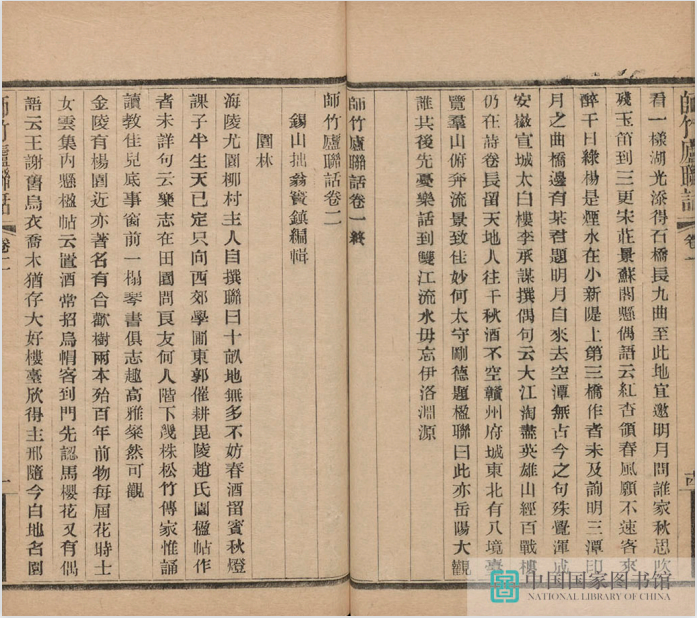 師竹廬聯話 卷一
看一樣湖光添得石橋長九曲至此地宜邀明月問誰家秋思吹
殘玉笛到三更宋莊景蘇閣懸偶語云紅杏領春風願不速客來
醉千日綠楊是煙水在小新隄上第三橋作者未及詢明三潭印
月之曲橋邊有某君題明月自來去空潭無古今之句殊覺渾成
安徽宣城太白樓李承謀撰偶句云大江淘盡英雄山經百戰樓
仍在詩卷長留天地人往千秋酒不空贛州府城東北有八境臺
覽羣山俯奔流景致佳妙何太守剛德題楹聯曰此亦岳陽大觀
誰共後先憂樂話到雙江流水毋忘伊洛淵源
師竹廬聯話卷一終
師竹廬聯話卷二
錫山拙翁竇鎮編輯
園林
海陵尤園柳村主人自撰聯曰十畝地無多不妨春酒留賓秋燈
課子半生天已定只向西郊學圃東郭催耕毘陵趙氏園楹帖作
者未詳句云樂志在田園問良友何人階下幾株松竹傳家惟誦
讀教佳兒底事窗前一榻琴書俱志趣高雅粲然可觀
金陵有楊園近亦著名有合歡樹兩本殆百年前物每屆花時士
女雲集內懸楹帖云置酒常招烏帽客到門先認馬櫻花又有偶
語云王謝舊烏衣喬木猶存大好樓臺欣得主邢隨今白地名園
師竹廬聯話 卷二 一
中国国家图书馆
NATIONAL LIBRARY OF CHINA